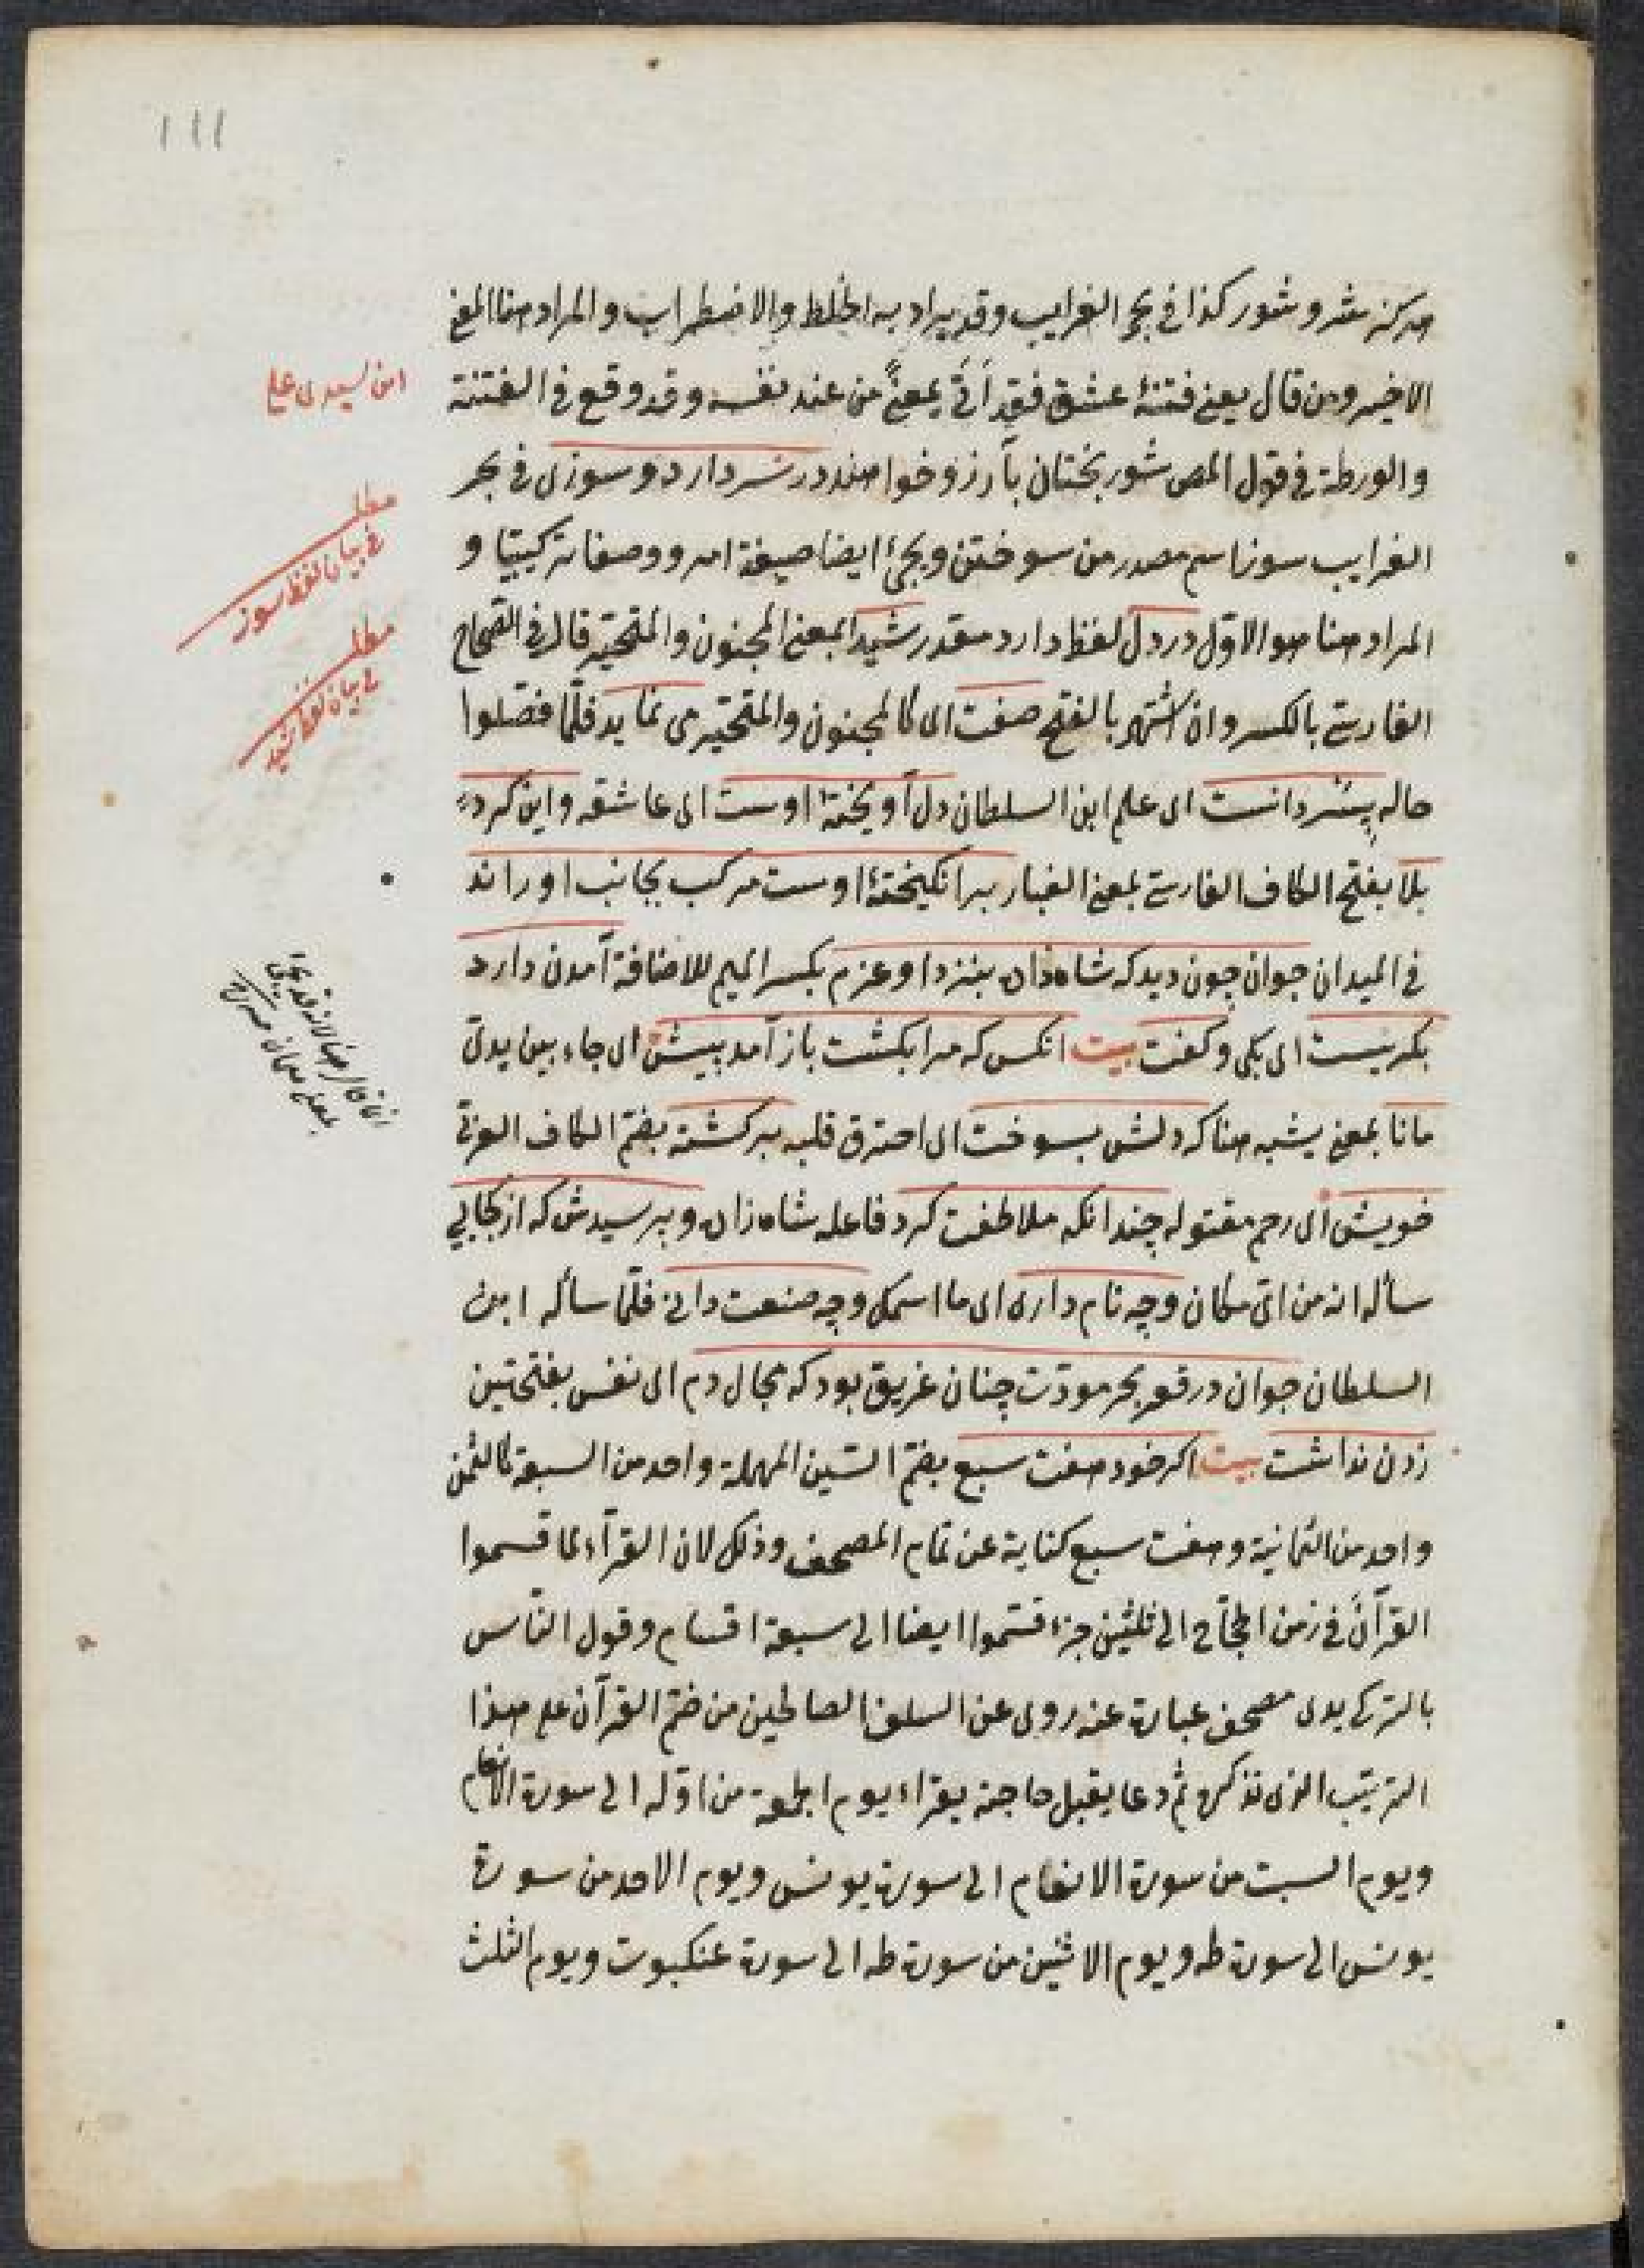 ١١١
هركز شر و شور كذا في بحر الغرايب وقد يراد به الخلط والاضطراب والمراد هنا المعنى
الاخير ومن قال يعنى فتنهٔ عشق فقد أتى بمعنًى من عند نفسه وقد وقع في الفتنة
والورطة في قول المص شوربختان بآرزو خواهند در سر دارد وسوزى في بحر
الغرايب سوز اسم مصدر من سوختن ويجئ ايضا صيغة امر ووصفا تركيبيا و
المراد هنا هو الاول در دل لفظ دارد مقدر شيدا بمعنى المجنون والمتحير قال في الصحاح
الفارسى بالكسر وان اشتهر بالفتح صفت اى كالمجنون والمتحير مى نمايد فلما فصلوا
حاله پسر دانست اى علم ابن السلطان دل آويختهٔ اوست اى عاشقه واين كرد
بلا بفتح الكاف الفارسى بمعنى الغبار برانكيختهٔ اوست مركب بجانب او راند
في الميدان جوان چون ديد كه شاه‌زاده بنزد او عزم بكسر الميم للاضافة آمدن دارد
بكريست اى بكى وكفت بيت انكس كه مرا بكشت باز آمد پيش اى جاء بين يدىّ
مانا بمعنى يشبه هنا كه دلش بسوخت اى احترق قلبه بر كشته بضم الكاف العربى
خويش اى رحم مقتوله چندانكه ملاطفت كرد فاعله شاه‌زاده وپرسيدش كه از كجايى
سأله انه من اىّ مكان وچه نام دارى اى ما اسمك وچه صنعت دانى فلما سأله ابن
السلطان جوان در قعر بحر مودّت چنان غريق بود كه مجال دم اى نفس بفتحتين
زدن نداشت بيت اكر خود هفت سبع بضم السين المهملة واحد من السبعة كالثمن
واحد من الثمانية وهفت سبع كناية عن تمام المصحف وذلك لان القرآء لما قسموا
القرآنَ في زمن الحجّاج الى ثلثين جزء قسّموا ايضا الى سبعة اقسام وقول النّاس
بالتركى يدى مصحف عبارة عنه روى عن السلف الصالحين من ختم القرآن على هذا
الترتيب الذى نذكره ثم دعا يقبل حاجته يقراء يوم الجمعة من اوّله الى سورة الانعام
ويوم السبت من سورة الانعام الى سورة يونس ويوم الاحد من سورة
يونس الى سورة طه ويوم الاثنين من سورة طه الى سورة عنكبوت ويوم الثلث
ابن سيدى على
مطلب
في بيان لفظ سوز
مطلب
في بيان لفظ شيدا